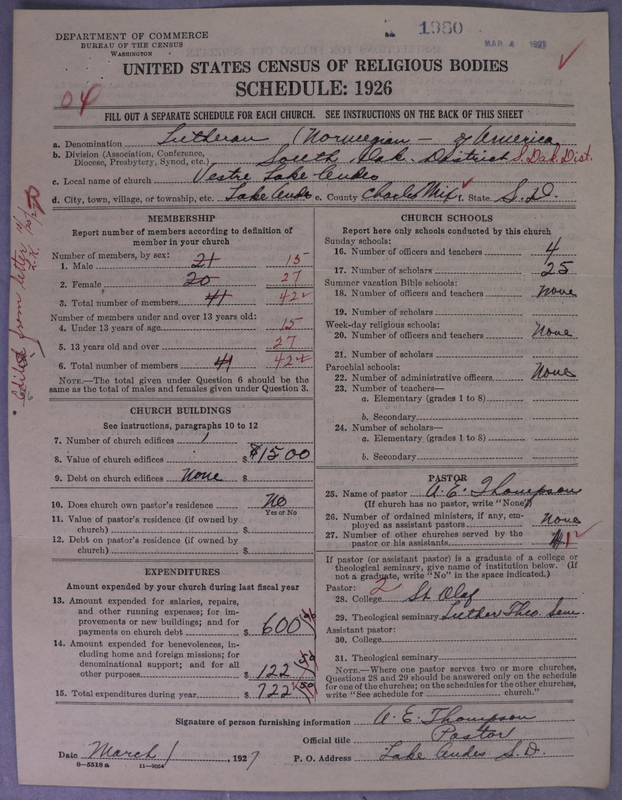 DEPARTMENT OF COMMERCE
BUREAU OF THE CENSUS
WASHINGTON
1980
MAR 4 1927
UNITED STATES CENSUS OF RELIGIOUS BODIES
SCHEDULE: 1926
04
FILL OUT A SEPARATE SCHEDULE FOR EACH CHURCH. SEE INSTRUCTIONS ON THE BACK OF THIS SHEET
a. Denomination Lutheran (Norwegian - of America
b. Division (Association, Conference, Diocese, Presbytery, Synod, etc.) South Dak. District S. Dak Dist.
c. Local name of church Vestre Lake Andes
d. City, town, village, or township, etc. Lake Andes e. County Charles Mix f. State S.D.
Edited from letter
MEMBERSHIP
Report number of members according to definition of
member in your church
Number of members, by sex:
1. Male 21 15
2. Female 20 27
3. Total number of members 41 42
Number of members under and over 13 years old:
4. Under 13 years of age 15
5. 13 years old and over 27
6. Total number of members 41 42
NOTE.—The total given under Question 6 should be
same as the total of males and females given under Question 3.
CHURCH BUILDINGS
See instructions, paragraphs 10 to 12
7. Number of church edifices 1
8. Value of church edifices $ $1500
9. Debt on church edifices None $
10. Does church own pastor's residence No
Yes or No
11. Value of pastor's residence (if owned by
church) $
12. Debt on pastor's residence (if owned by
church) $
EXPENDITURES
Amount expended by your church during last fiscal year
13. Amount expended for salaries, repairs,
and other running expenses; for im-
provements or new buildings; and for
payments on church debt $ 600
14. Amount expended for benevolences, in-
cluding home and foreign missions; for
denominational support; and for all
other purposes $ 122
15. Total expenditures during year $ 722
CHURCH SCHOOLS
Report here only schools conducted by this church
Sunday schools:
16. Number of officers and teachers 4
17. Number of scholars 25
Summer vacation Bible schools:
18. Number of officers and teachers None
19. Number of scholars
Week-day religious schools:
20. Number of officers and teachers None
21. Number of scholars
Parochial schools:
22. Number of administrative officers None
23. Number of teachers—
a. Elementary (grades 1 to 8)
b. Secondary
24. Number of scholars—
a. Elementary (grades 1 to 8)
b. Secondary
PASTOR
25. Name of pastor A. E. Thompson
(If church has no pastor, write "None")
26. Number of ordained ministers, if any, em-
ployed as assistant pastors None
27. Number of other churches served by the
pastor or his assistants 1
If pastor (or assistant pastor) is a graduate of a college or
theological seminary, give name of institution below. (If
not a graduate, write "No" in the space indicated.)
Pastor: 2
28. College St Olaf
29. Theological seminary Luther Theo. Sem.
Assistant pastor:
30. College
31. Theological seminary
NOTE.—Where one pastor serves two or more churches,
Questions 28 and 29 should be answered only on the schedule
for one of the churches; on the schedules for the other churches,
write "See schedule for church."
Signature of person furnishing information A. E. Thompson
Official title Pastor
Date March 1, 1927 P. O. Address Lake Andes S.D.
8-5518 a